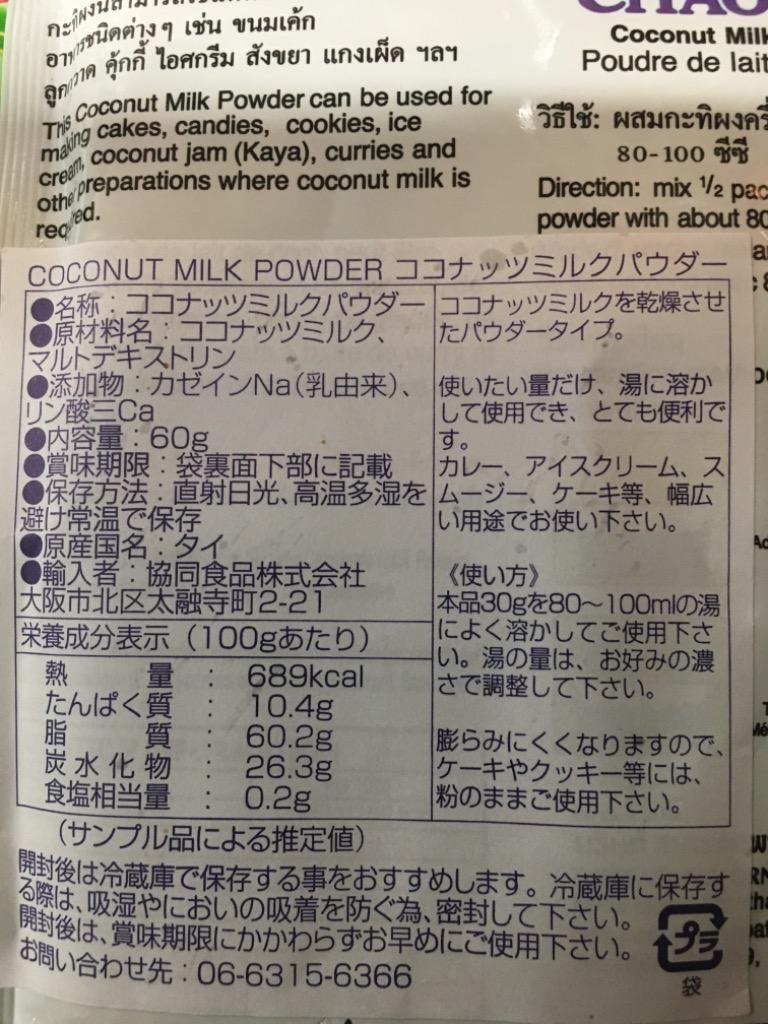 อาหารชนิดต่างๆ เช่น ขนมเค้ก
ลูกกวาด คุ้กกี้ ไอศกรีม สังขยา แกงเผ็ด ฯลฯ
This Coconut Milk Powder can be used for
making cakes, candies, cookies, ice
cream, coconut jam (Kaya), curries and
other preparations where coconut milk is
required.
Coconut Milk
Poudre de lait
วิธีใช้: ผสมกะทิผงครึ่
80-100 ซีซี
Direction: mix 1/2 pac
powder with about 80
COCONUT MILK POWDER ココナッツミルクパウダー
●名称：ココナッツミルクパウダー
●原材料名：ココナッツミルク、
マルトデキストリン
●添加物：カゼインNa(乳由来)、
リン酸三Ca
●内容量：60g
●賞味期限：袋裏面下部に記載
●保存方法：直射日光、高温多湿を
避け常温で保存
●原産国名：タイ
●輸入者：協同食品株式会社
大阪市北区太融寺町2-21
栄養成分表示（100gあたり）
熱量：689kcal
たんぱく質：10.4g
脂質：60.2g
炭水化物：26.3g
食塩相当量：0.2g
ココナッツミルクを乾燥させ
たパウダータイプ。
使いたい量だけ、湯に溶か
して使用でき、とても便利で
す。
カレー、アイスクリーム、ス
ムージー、ケーキ等、幅広
い用途でお使い下さい。
《使い方》
本品30gを80～100mlの湯
によく溶かしてご使用下さ
い。湯の量は、お好みの濃
さで調整して下さい。
膨らみにくくなりますので、
ケーキやクッキー等には、
粉のままご使用下さい。
（サンプル品による推定値）
開封後は冷蔵庫で保存する事をおすすめします。冷蔵庫に保存す
る際は、吸湿やにおいの吸着を防ぐ為、密封して下さい。
開封後は、賞味期限にかかわらずお早めにご使用下さい。
お問い合わせ先：06-6315-6366
プラ
袋